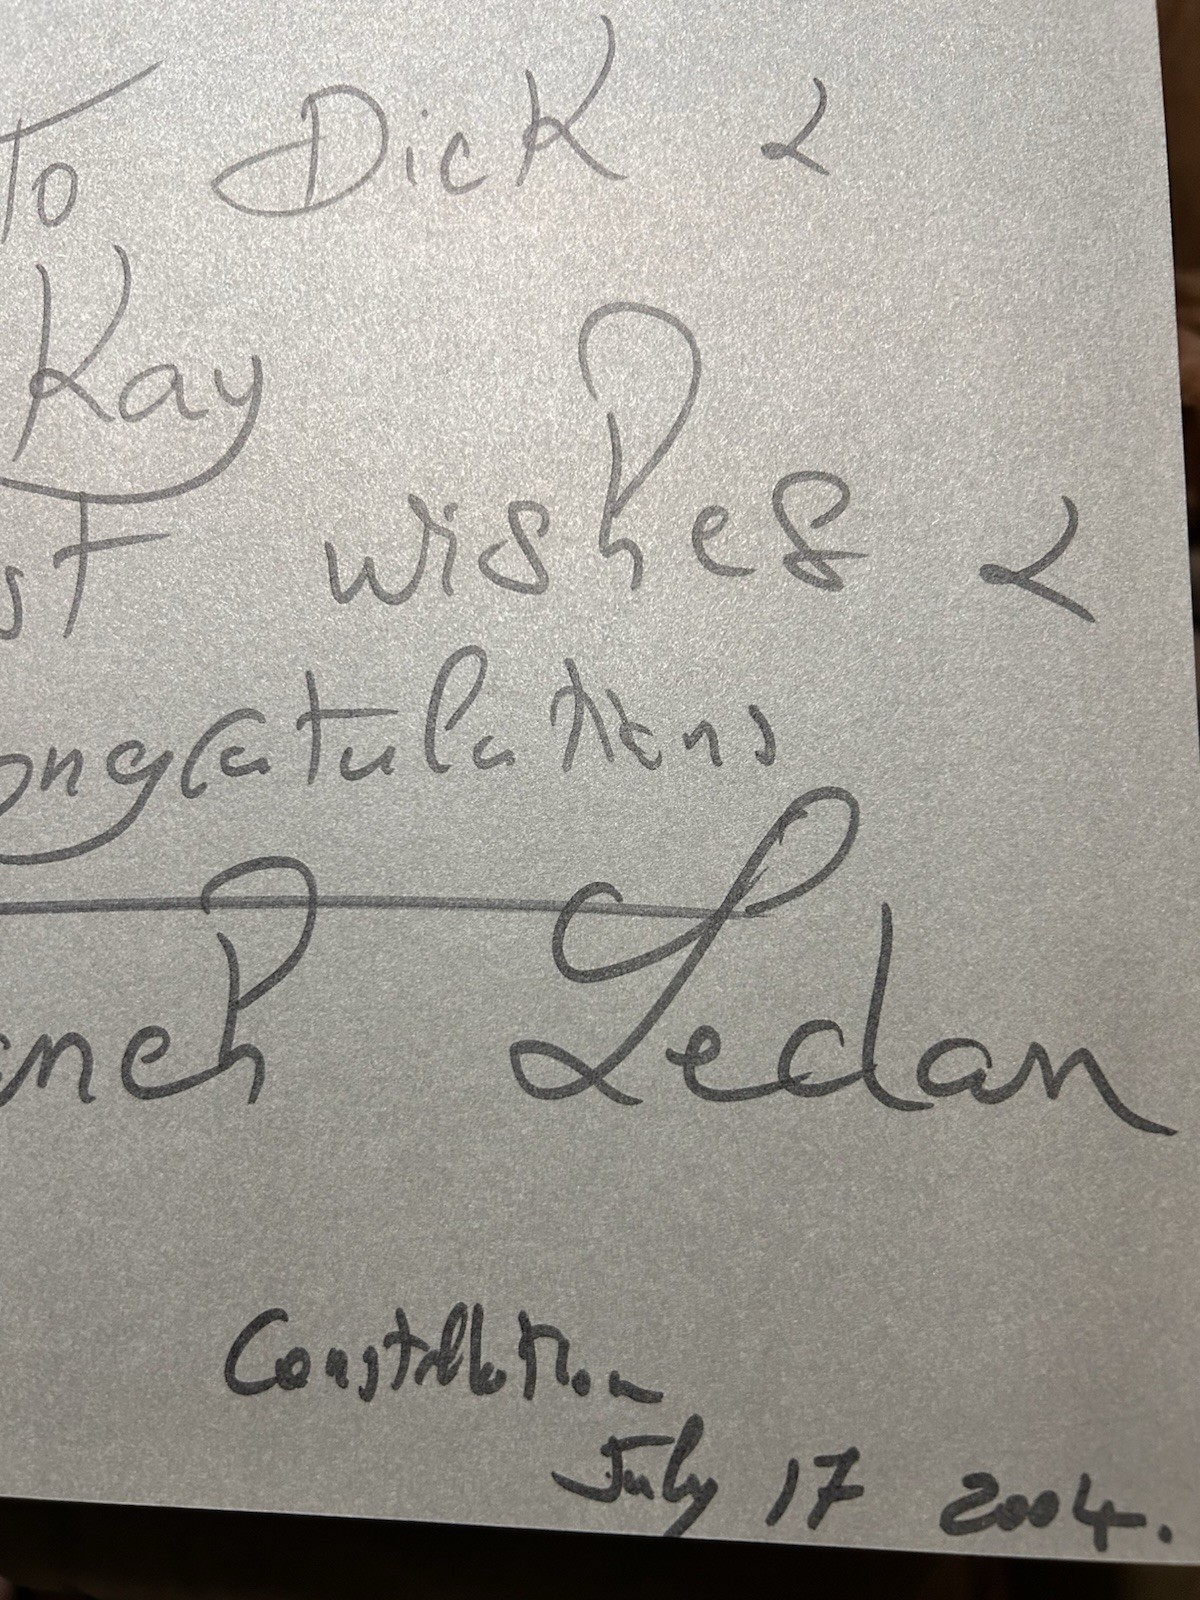 To Dick &
Kay
st wishes &
ongratulations
anch Ledan
Constellation
July 17 2004.